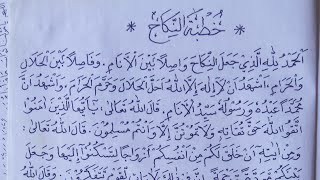 خُطْبَةُ النِّكَاحِ
اَلْحَمْدُ لِلّٰهِ الَّذِيْ جَعَلَ النِّكَاحَ وَاصِلًا بَيْنَ الْاَنَامِ. وَفَاصِلًا بَيْنَ الْحَلَالِ
وَالْحَرَامِ. اَشْهَدُ اَنْ لَا اِلٰهَ اِلَّا اللهُ اَحَلَّ الْحَلَالَ وَحَرَّمَ الْحَرَامَ. وَاَشْهَدُ اَنَّ
مُحَمَّدًا عَبْدُهُ وَرَسُوْلُهُ سَيِّدُ الْاَنَامِ. قَالَ اللهُ تَعَالٰى: يٰاَيُّهَا الَّذِيْنَ اٰمَنُوْا
اتَّقُوا اللهَ حَقَّ تُقَاتِهِ وَلَا تَمُوْتُنَّ اِلَّا وَاَنْتُمْ مُسْلِمُوْنَ. قَالَ اللهُ تَعَالٰى:
وَمِنْ اٰيٰتِهِ اَنْ خَلَقَ لَكُمْ مِنْ اَنْفُسِكُمْ اَزْوَاجًا لِتَسْكُنُوْا اِلَيْهَا وَجَعَلَ
لِقَوْمٍ يَتَفَكَّرُوْنَ. وَقَالَ اللهُ